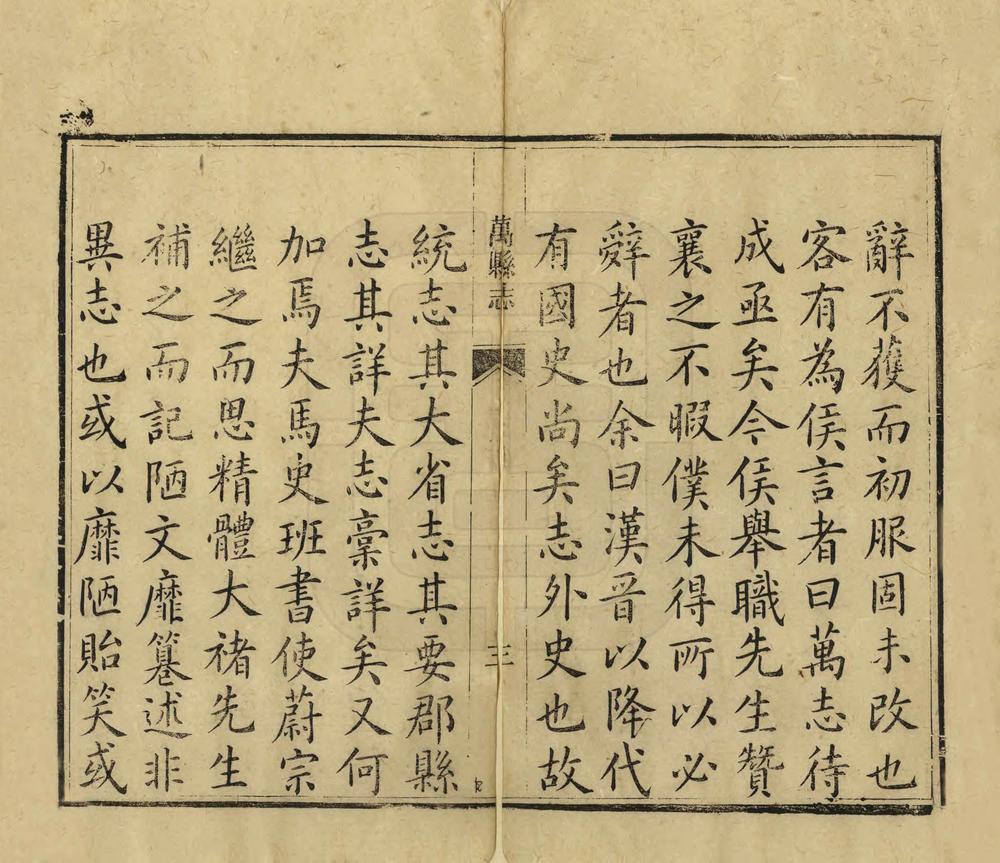 辭不獲而初服固未改也
客有為侯言者曰萬志待
成亟矣今侯舉職先生贊
襄之不暇僕未得所以必
辤者也余曰漢晉以降代
有國史尚矣志外史也故
萬縣志
三
統志其大省志其要郡縣
志其詳夫志稾詳矣又何
加焉夫馬史班書使蔚宗
繼之而思精體大褚先生
補之而記陋文靡簒述非
異志也或以靡陋貽笑或